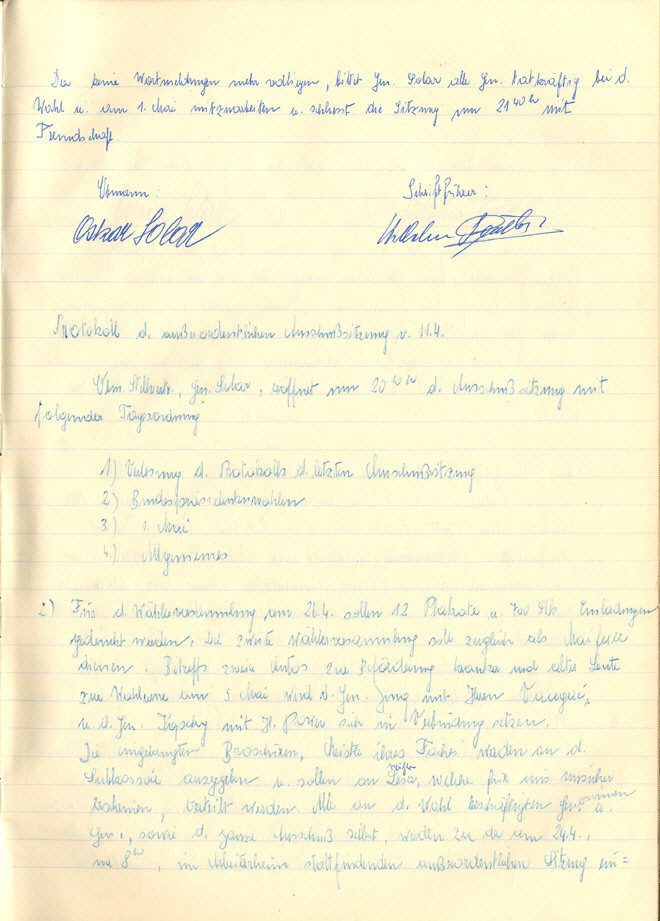 Da keine Wortmeldungen mehr vorliegen, bittet Gen. Solar alle Gen. tatkräftig bei d.
Wahl u. am 1. Mai mitzuarbeiten u. schliesst die Sitzung um 21 40 h mit
Freundschaft.
Obmann: Schriftführer:
Oskar Solar Wilhelm
Protokoll d. außerordentlichen Ausschußsitzung v. 11.4.
Gen. Solar, eröffnet um 20 h d. Ausschußsitzung mit
folgender Tagesordnung
1.) Verlesung d. Protokolls d. letzten Ausschußsitzung
2.) Bundespräsidentenwahlen
3.) 1. Mai
4.) Allgemeines
2.) Für d. Wählerversammlung am 26.4. sollen 12 Plakate u. 700 Stk. Einladungen
gedruckt werden. Die zweite Wählerversammlung soll zugleich als Maifeier
dienen. Betreffs zweier Autos zur Beförderung kranker und alter Leute
zur Wahlurne am 5 Mai wird d. Gen. Jung mit Herrn
u. d. Gen. mit H. sich in Verbindung setzen.
Die eingelangten Broschüren, "Meister ihres Faches" werden an d.
Subkassiere ausgegeben u. sollen an Leser, welche für uns unsicher
erscheinen, verteilt werden. Alle an d. Wahl beschäftigten Genossinnen u.
Gen., sowie d. ganze Ausschuß selbst, werden zu der am 24.4.,
um 8 h, im Arbeiterheim stattfindenden außerordentlichen Sitzung ein=